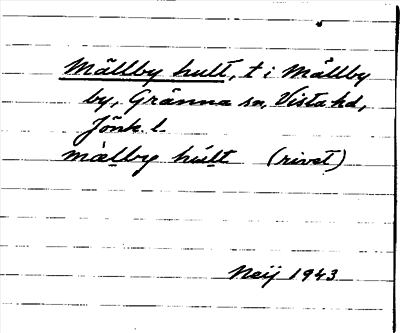 Mållby hult, t i Mållby
by, Gränna sn, Vista hd,
Jönk. l.
màlby húlt (rivet)
Neij 1943